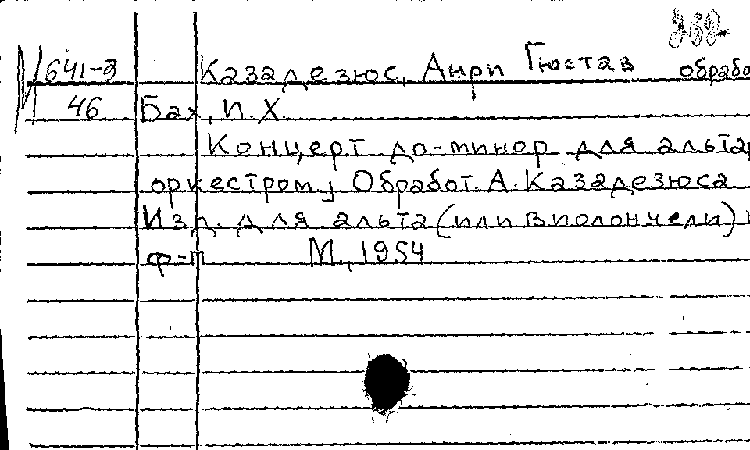 М 641-3 Казадезюс, Анри Гюстав обрабо
46 Бах, И. Х.
Концерт до-минор для альта
оркестром; Обработ. А. Казадезюса
Изд. для альта (или виолончели)
ф-п М., 1954